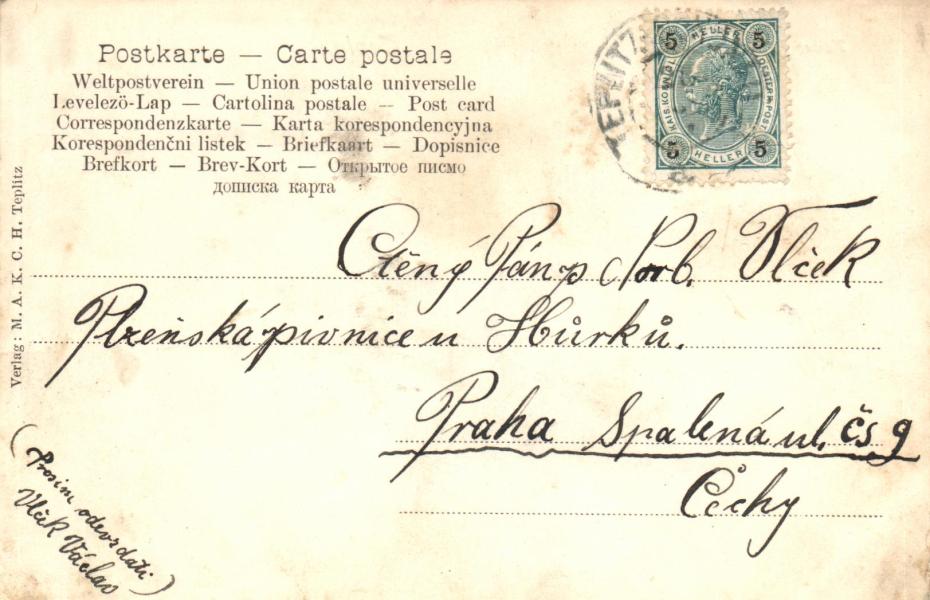 Postkarte — Carte postale
Weltpostverein — Union postale universelle
Levelező-Lap — Cartolina postale — Post card
Correspondenzkarte — Karta korespondencyjna
Korespondenční listek — Briefkaart — Dopisnice
Brefkort — Brev-Kort — Открытое писмо
дописка карта
TEPLITZ
5 HELLER 5
5 HELLER 5
Verlag: M. A. K. C. H. Teplitz
Ctěný Pán p Norb. Vlček
Plzeňská pivnice u Hůrků.
Praha Spalená ul. čs 9
Čechy
(Prosím odevzdati
Vlček Václav)